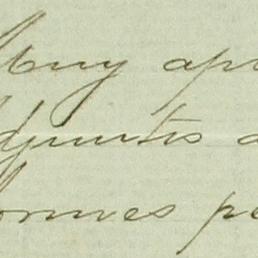 Muy apr
Adjuntis a
formes pe